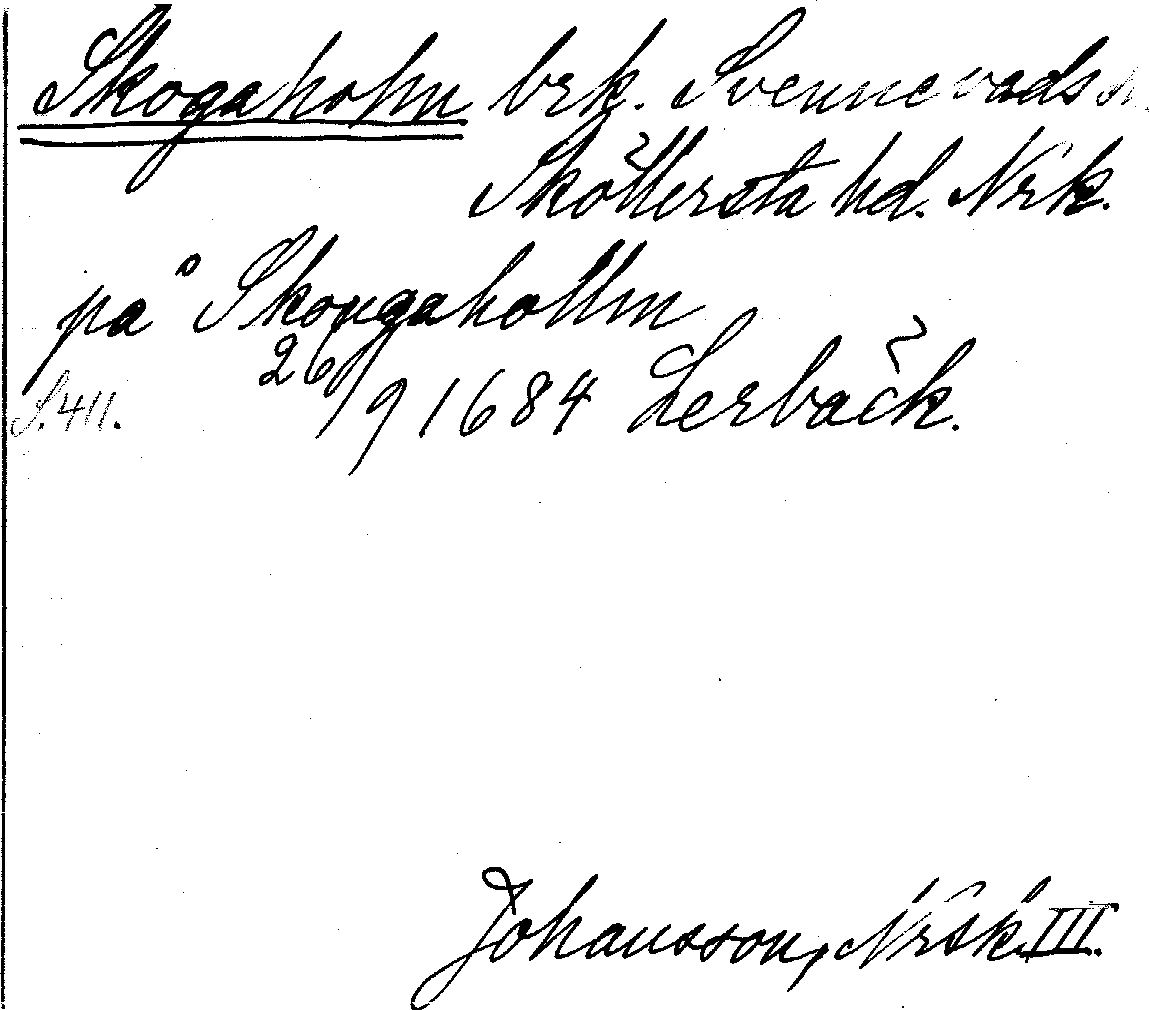 Skogaholm brk. Svennevads
Sköllersta hd. Nrk.
på Skougahollm
S. 411. 26/9 1684 Lerbäck.
Johansson, Nrsk. III.